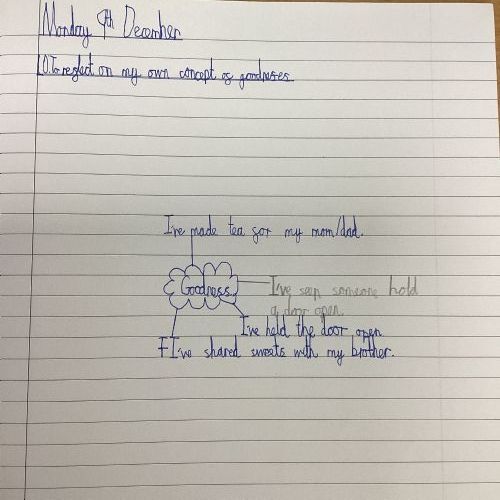 Monday 9th December
LO.To reflect on my own concept of goodness.
I've made tea for my mom/dad.
Goodness
I've seen someone hold
a door open.
I've held the door open
I've shared sweets with my brother.